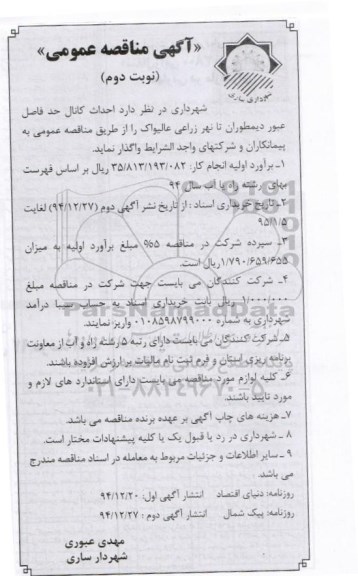 «آگهی مناقصه عمومی»
(نوبت دوم)
شهرداری ساری
شهرداری در نظر دارد احداث کانال حد فاصل
عبور دیمطوران تا نهر زراعی عالیواک را از طریق مناقصه عمومی به
پیمانکاران و شرکتهای واجد الشرایط واگذار نماید.
۱ـ برآورد اولیه انجام کار: ۳۵/۸۱۳/۱۹۳/۰۸۲ ریال بر اساس فهرست
بهای رشته راه یا آب سال ۹۴
۲ـ تاریخ خریداری اسناد: از تاریخ نشر آگهی دوم (۹۴/۱۲/۲۷) لغایت
۹۵/۱/۵
۳ـ سپرده شرکت در مناقصه ۵% مبلغ برآورد اولیه به میزان
۱/۷۹۰/۶۵۹/۶۵۵ ریال است.
۴ـ شرکت کنندگان می بایست جهت شرکت در مناقصه مبلغ
۱/۰۰۰/۰۰۰ ریال بابت خریداری اسناد به حساب سیبا درآمد
شهرداری به شماره ۰۱۰۸۵۹۸۷۹۹۰۰۰ واریز نمایند.
۵ـ شرکت کنندگان می بایست دارای رتبه ۵ رشته راه و آب از معاونت
برنامه ریزی استان و فرم ثبت نام مالیات بر ارزش افزوده باشند.
۶ـ کلیه لوازم مورد مناقصه می بایست دارای استاندارد های لازم و
مورد تایید باشند.
۷ـ هزینه های چاپ آگهی بر عهده برنده مناقصه می باشد.
۸ـ شهرداری در رد یا قبول یک یا کلیه پیشنهادات مختار است.
۹ـ سایر اطلاعات و جزئیات مربوط به معامله در اسناد مناقصه مندرج
می باشد.
روزنامه: دنیای اقتصاد انتشار آگهی اول: ۹۴/۱۲/۲۰
روزنامه: پیک شمال انتشار آگهی دوم: ۹۴/۱۲/۲۷
مهدی عبوری
شهردار ساری
ParsNamadData
۰۲۱-۸۸۳۴۹۶۷۰-۵